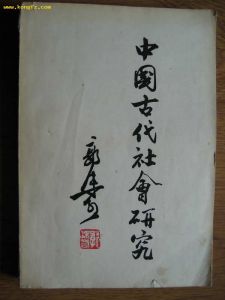 www.kongfz.com
中國古代社會研究
郭沫若